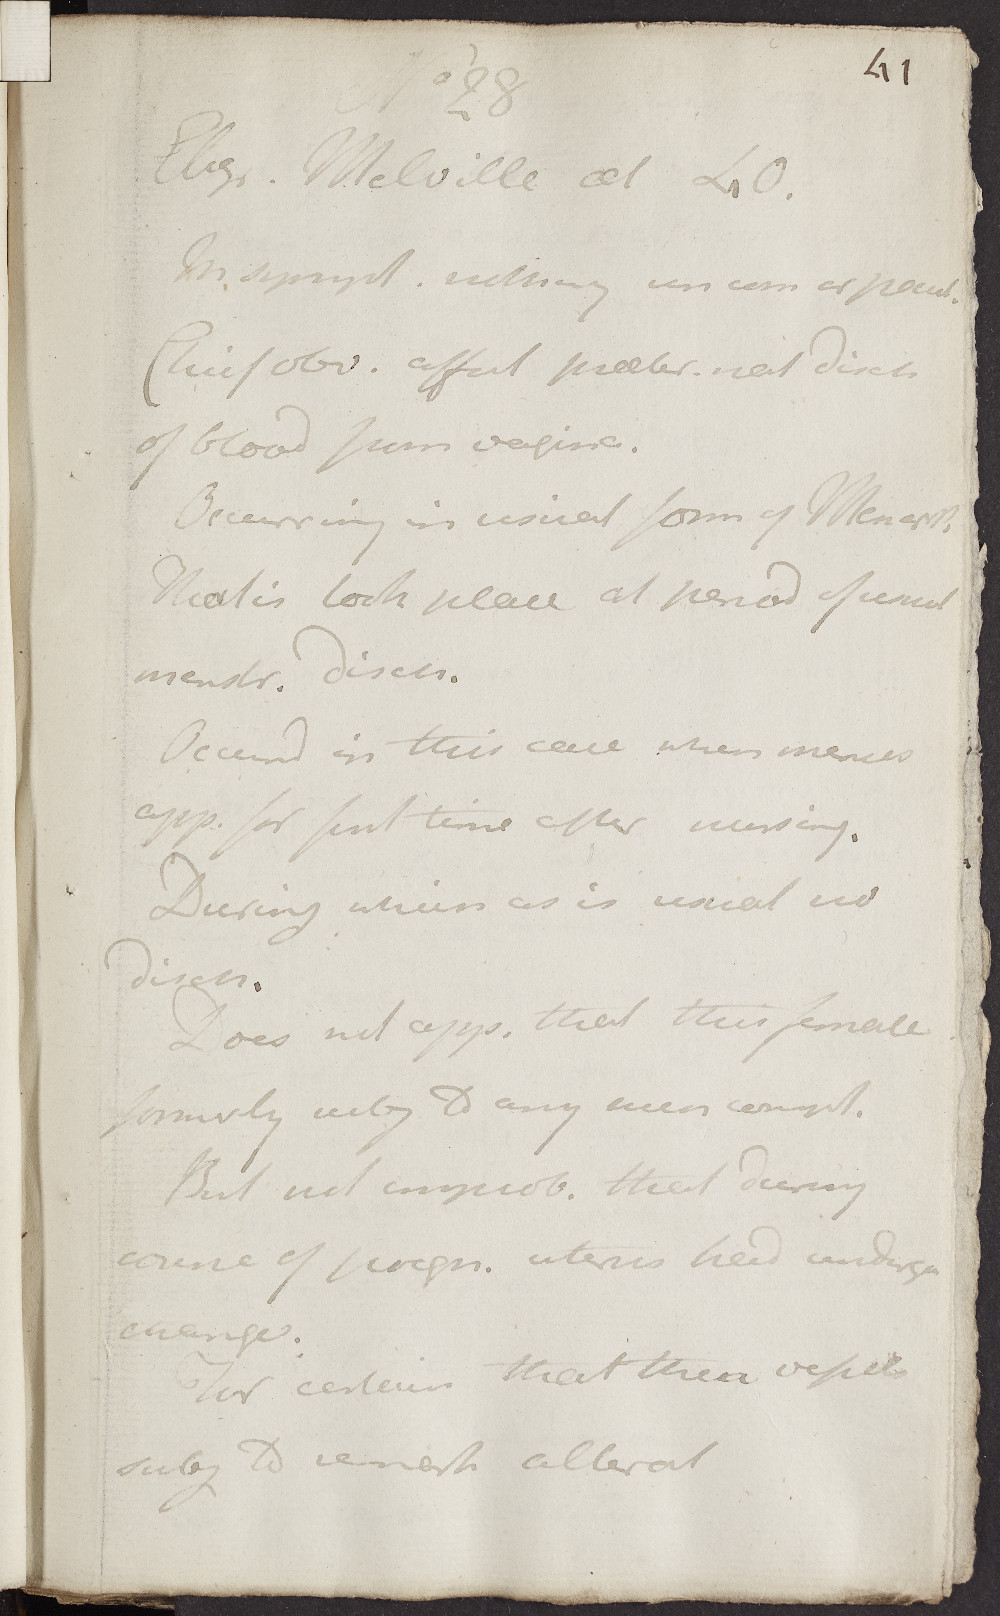 41
No 28
Eliz. Melville æt 40.
In sympt. nothing uncom or pecul.
Chief obv. affect præter. nat disch
of blood from vagina.
Occurring in usual form of Menorrh.
That is took place at period of usual
menstr. disch.
Occurrd in this case when menses
app. for first time after nursing.
During which as is usual no
disch.
Does not app. that this female
formerly subj to any such compt.
But not improb. that during
course of pregn. uterus had undergo
change.
For certain that then vessels
subj to remark alterat